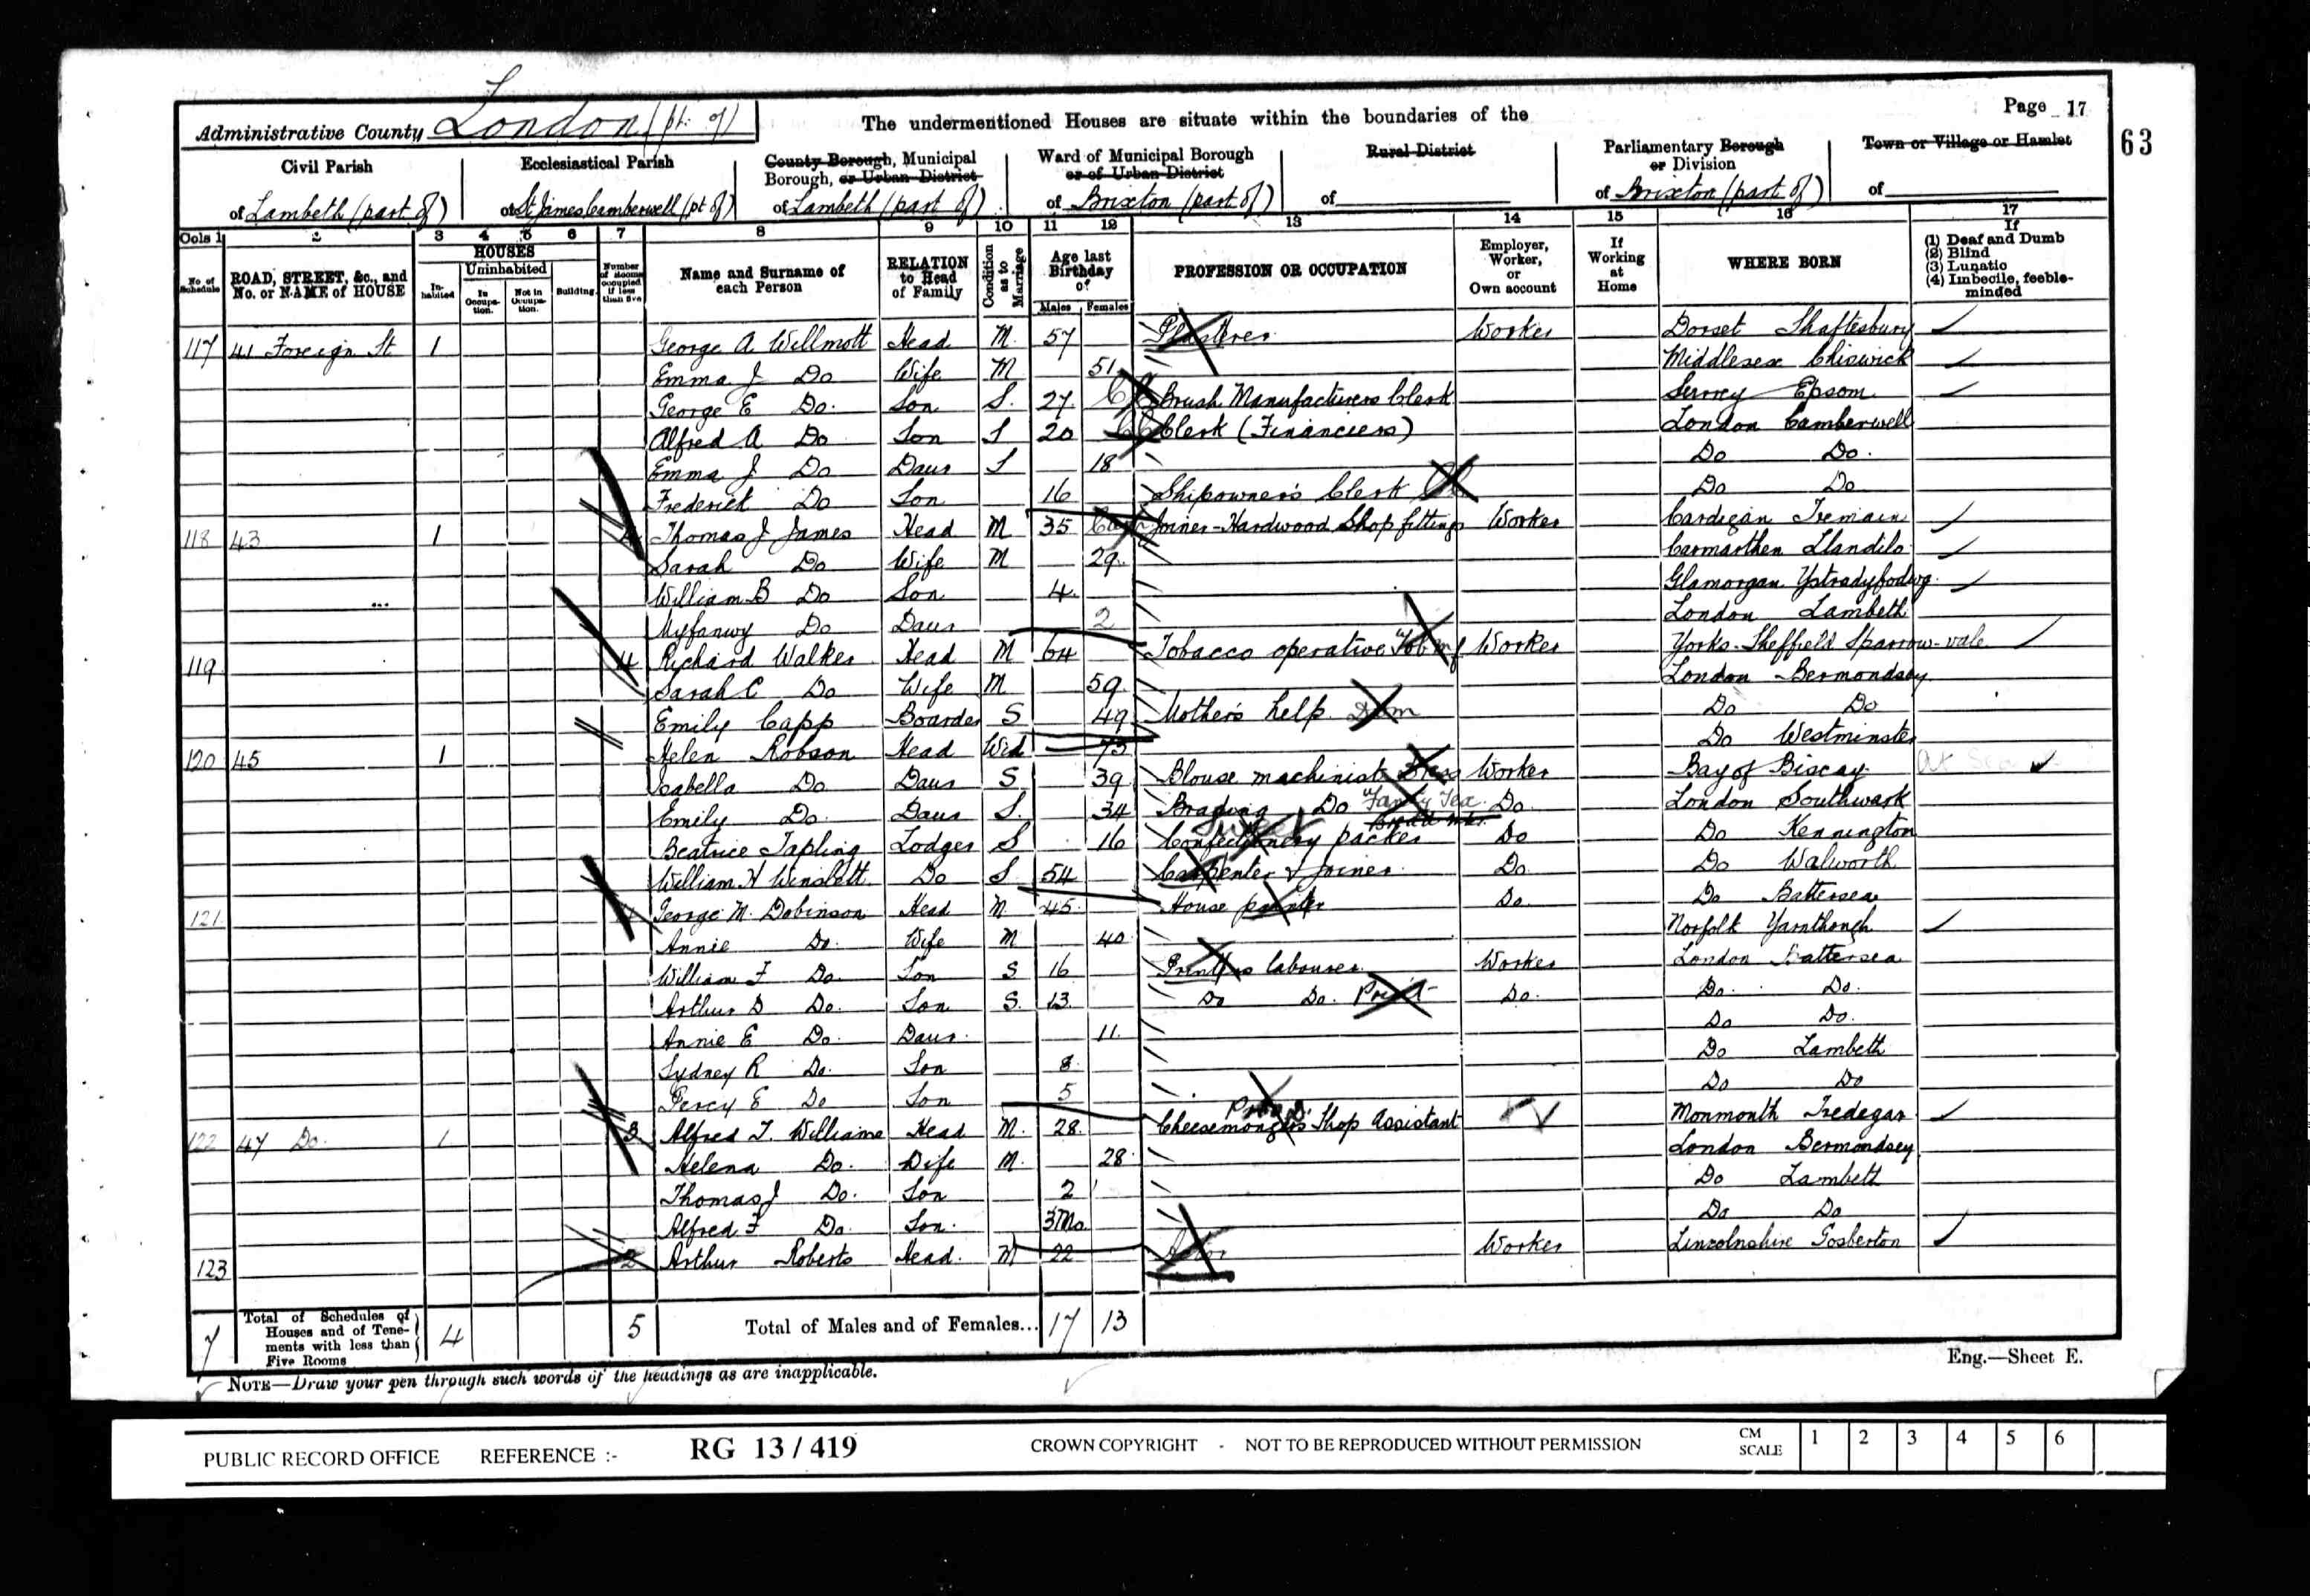 Administrative County London (pt. of)
The undermentioned Houses are situate within the boundaries of the
Page 17
63
Civil Parish
of Lambeth (part of)
Ecclesiastical Parish
of St James Camberwell (pt of)
County Borough, Municipal
Borough, or Urban District
of Lambeth (part of)
Ward of Municipal Borough
or of Urban District
of Brixton (part of)
Rural District
of
Parliamentary Borough
or Division
of Brixton (part of)
Town or Village or Hamlet
of
Cols 1 2 3 4 5 6 7 8 9 10 11 12 13 14 15 16 17
No of Schedule
ROAD, STREET, &c., and No. or NAME of HOUSE
HOUSES
In-habited
Uninhabited
In Occupa-tion.
Not in Occupa-tion.
Building.
Number of Rooms occupied if less than five
Name and Surname of each Person
RELATION to Head of Family
Condition as to Marriage
Age last Birthday of
Males Females
PROFESSION OR OCCUPATION
Employer, Worker, or Own account
If Working at Home
WHERE BORN
If
(1) Deaf and Dumb
(2) Blind
(3) Lunatic
(4) Imbecile, feeble-minded
117 41 Foreign St 1 George A Willmott Head M 57 Plasterer Worker Dorset Shaftesbury
Emma J Do Wife M 51 Middlesex Chiswick
George E Do. Son S. 27 Brush Manufacturers Clerk Surrey Epsom
Alfred A Do Son S 20 Clerk (Financiers) London Camberwell
Emma J Do Daur S 18 Do Do.
Frederick Do Son 16 Shipowner's Clerk Do Do
118 43 1 4 Thomas J James Head M 35 Joiner-Hardwood Shop fittings Worker Cardigan Tremain
Sarah Do Wife M 29. Carmarthen Llandilo
William B Do Son 4. Glamorgan Ystradyfodwg.
Myfanwy Do Daur 2 London Lambeth
119 4 Richard Walker Head M 64 Tobacco operative Worker Yorks. Sheffield Sparrow-vale
Sarah C Do Wife M 59. London Bermondsey
Emily Capp Boarder S 49 Mother's help Dom Do Do
120 45 1 Helen Robson Head Wid 73 Do Westminster
Isabella Do Daur S 39 Blouse machinist Worker Bay of Biscay At Sea
Emily Do. Daur S. 34 Do Fancy Tex Do. London Southwark
Beatrice Tapling Lodger S 16 Confectionery packer Do Do Kennington
Sweet
William H Do S 54 Carpenter & Joiner Do. Do Walworth
121 4 George M. Dobinson Head M 45. House painter Do. Do Battersea
Annie Do. Wife M 40 Norfolk
William F Do. Son S 16 Printers labourer Worker London Battersea
Arthur D Do. Son S. 13 Do Do. Print Do. Do. Do.
Annie E Do. Daur. 11. Do Do.
Sydney R Do. Son 8 Do Lambeth
Percy E Do Son 5 Do Do
122 47 Do. 1 3 Alfred T. Williams Head M. 28. Cheesemongers Shop Assistant Monmouth Tredegar
Helena Do. Wife M. 28 London Bermondsey
Thomas J Do. Son 2 Do Lambeth
Alfred F Do. Son. 3 Mo Do Do
123 2 Arthur Roberts Head. M 22 Actor Worker Lincolnshire Gosberton
7 Total of Schedules of Houses and of Tene-ments with less than Five Rooms 4 5 Total of Males and of Females... 17 13
Eng.—Sheet E.
NOTE—Draw your pen through such words of the headings as are inapplicable.
PUBLIC RECORD OFFICE REFERENCE :- RG 13 / 419 CROWN COPYRIGHT - NOT TO BE REPRODUCED WITHOUT PERMISSION CM SCALE 1 2 3 4 5 6